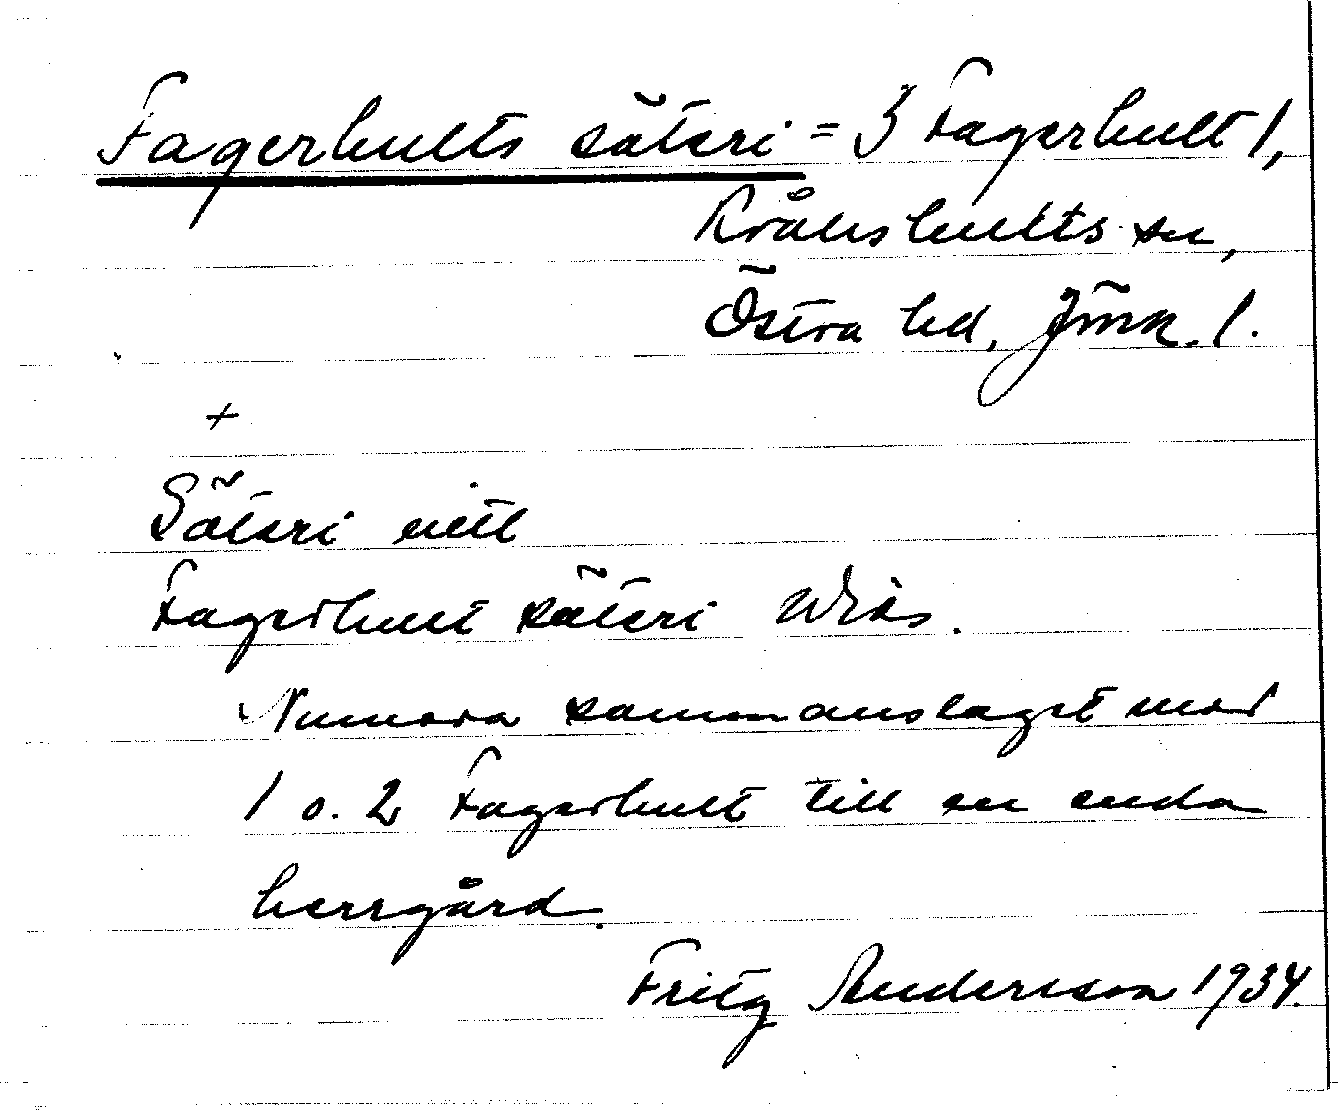 Fagerhults säteri = 3 Fagerhult 1,
Kråkshults sn,
Östra hd, Jönk. l.
+
Säteri
Fagerhult säteri
Numera sammanslaget med
1 o. 2 Fagerhult till en enda
herrgård.
Fritz Andersson 1934.